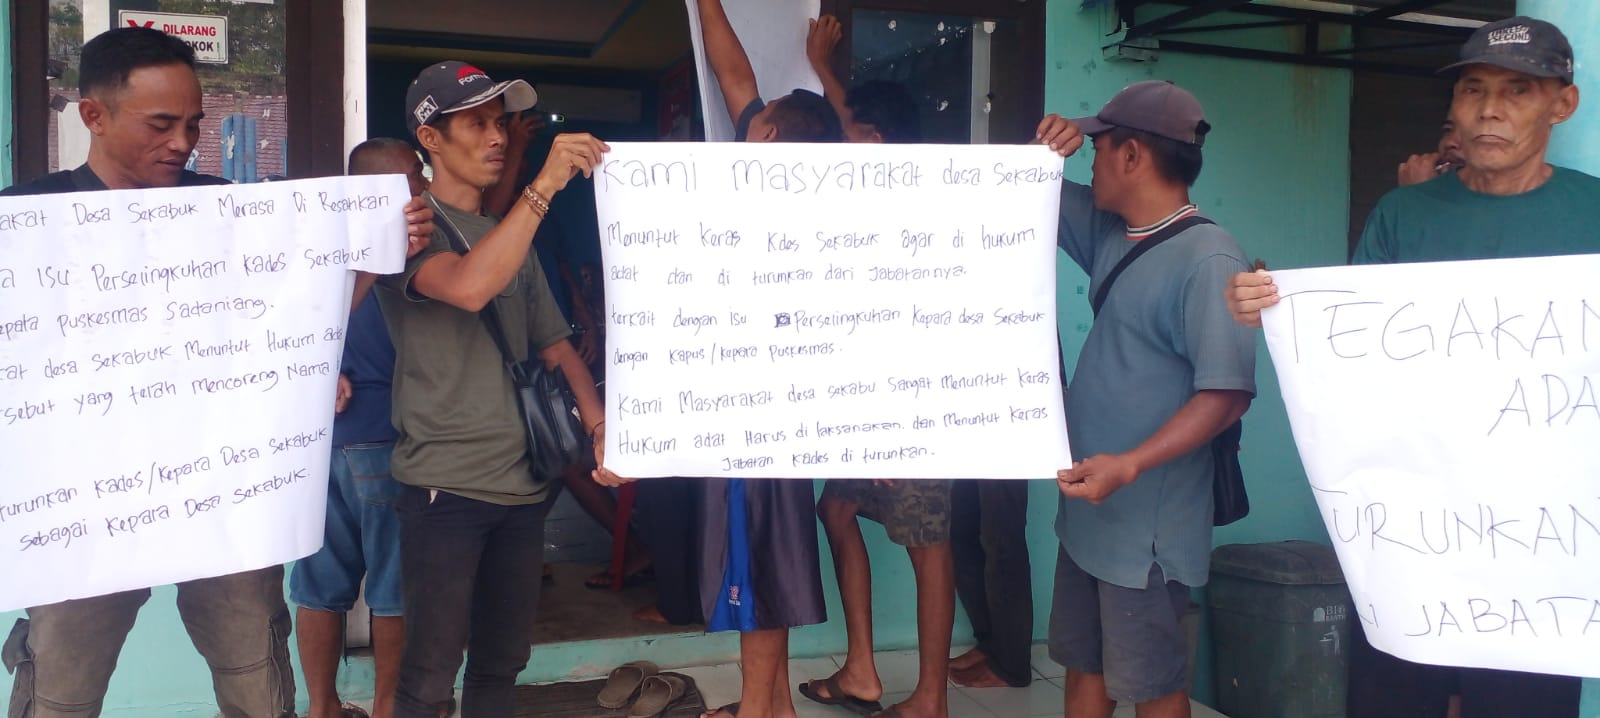 DILARANG
akat Desa Sekabuk Merasa Di Resahkan
a ISU Perselingkuhan Kades Sekabuk
epala Puskesmas Sadaniang.
at desa Sekabuk Menuntut Hukum ada
sebut yang telah Mencoreng Nama
turunkan Kades/Kepala Desa Sekabuk
sebagai Kepala Desa Sekabuk.
Kami Masyarakat desa Sekabuk
Menuntut Keras Kdes Sekabuk agar di hukum
adat dan di turunkan dari Jabatannya.
terkait dengan isu Perselingkuhan Kepala desa Sekabuk
dengan Kapus/Kepala Puskesmas.
Kami Masyarakat desa sekabu Sangat menuntut Keras
Hukum adat Harus di laksanakan. dan Menuntut Keras
Jabatan Kades di turunkan.
TEGAKAN
ADA
TURUNKAN
I JABATA